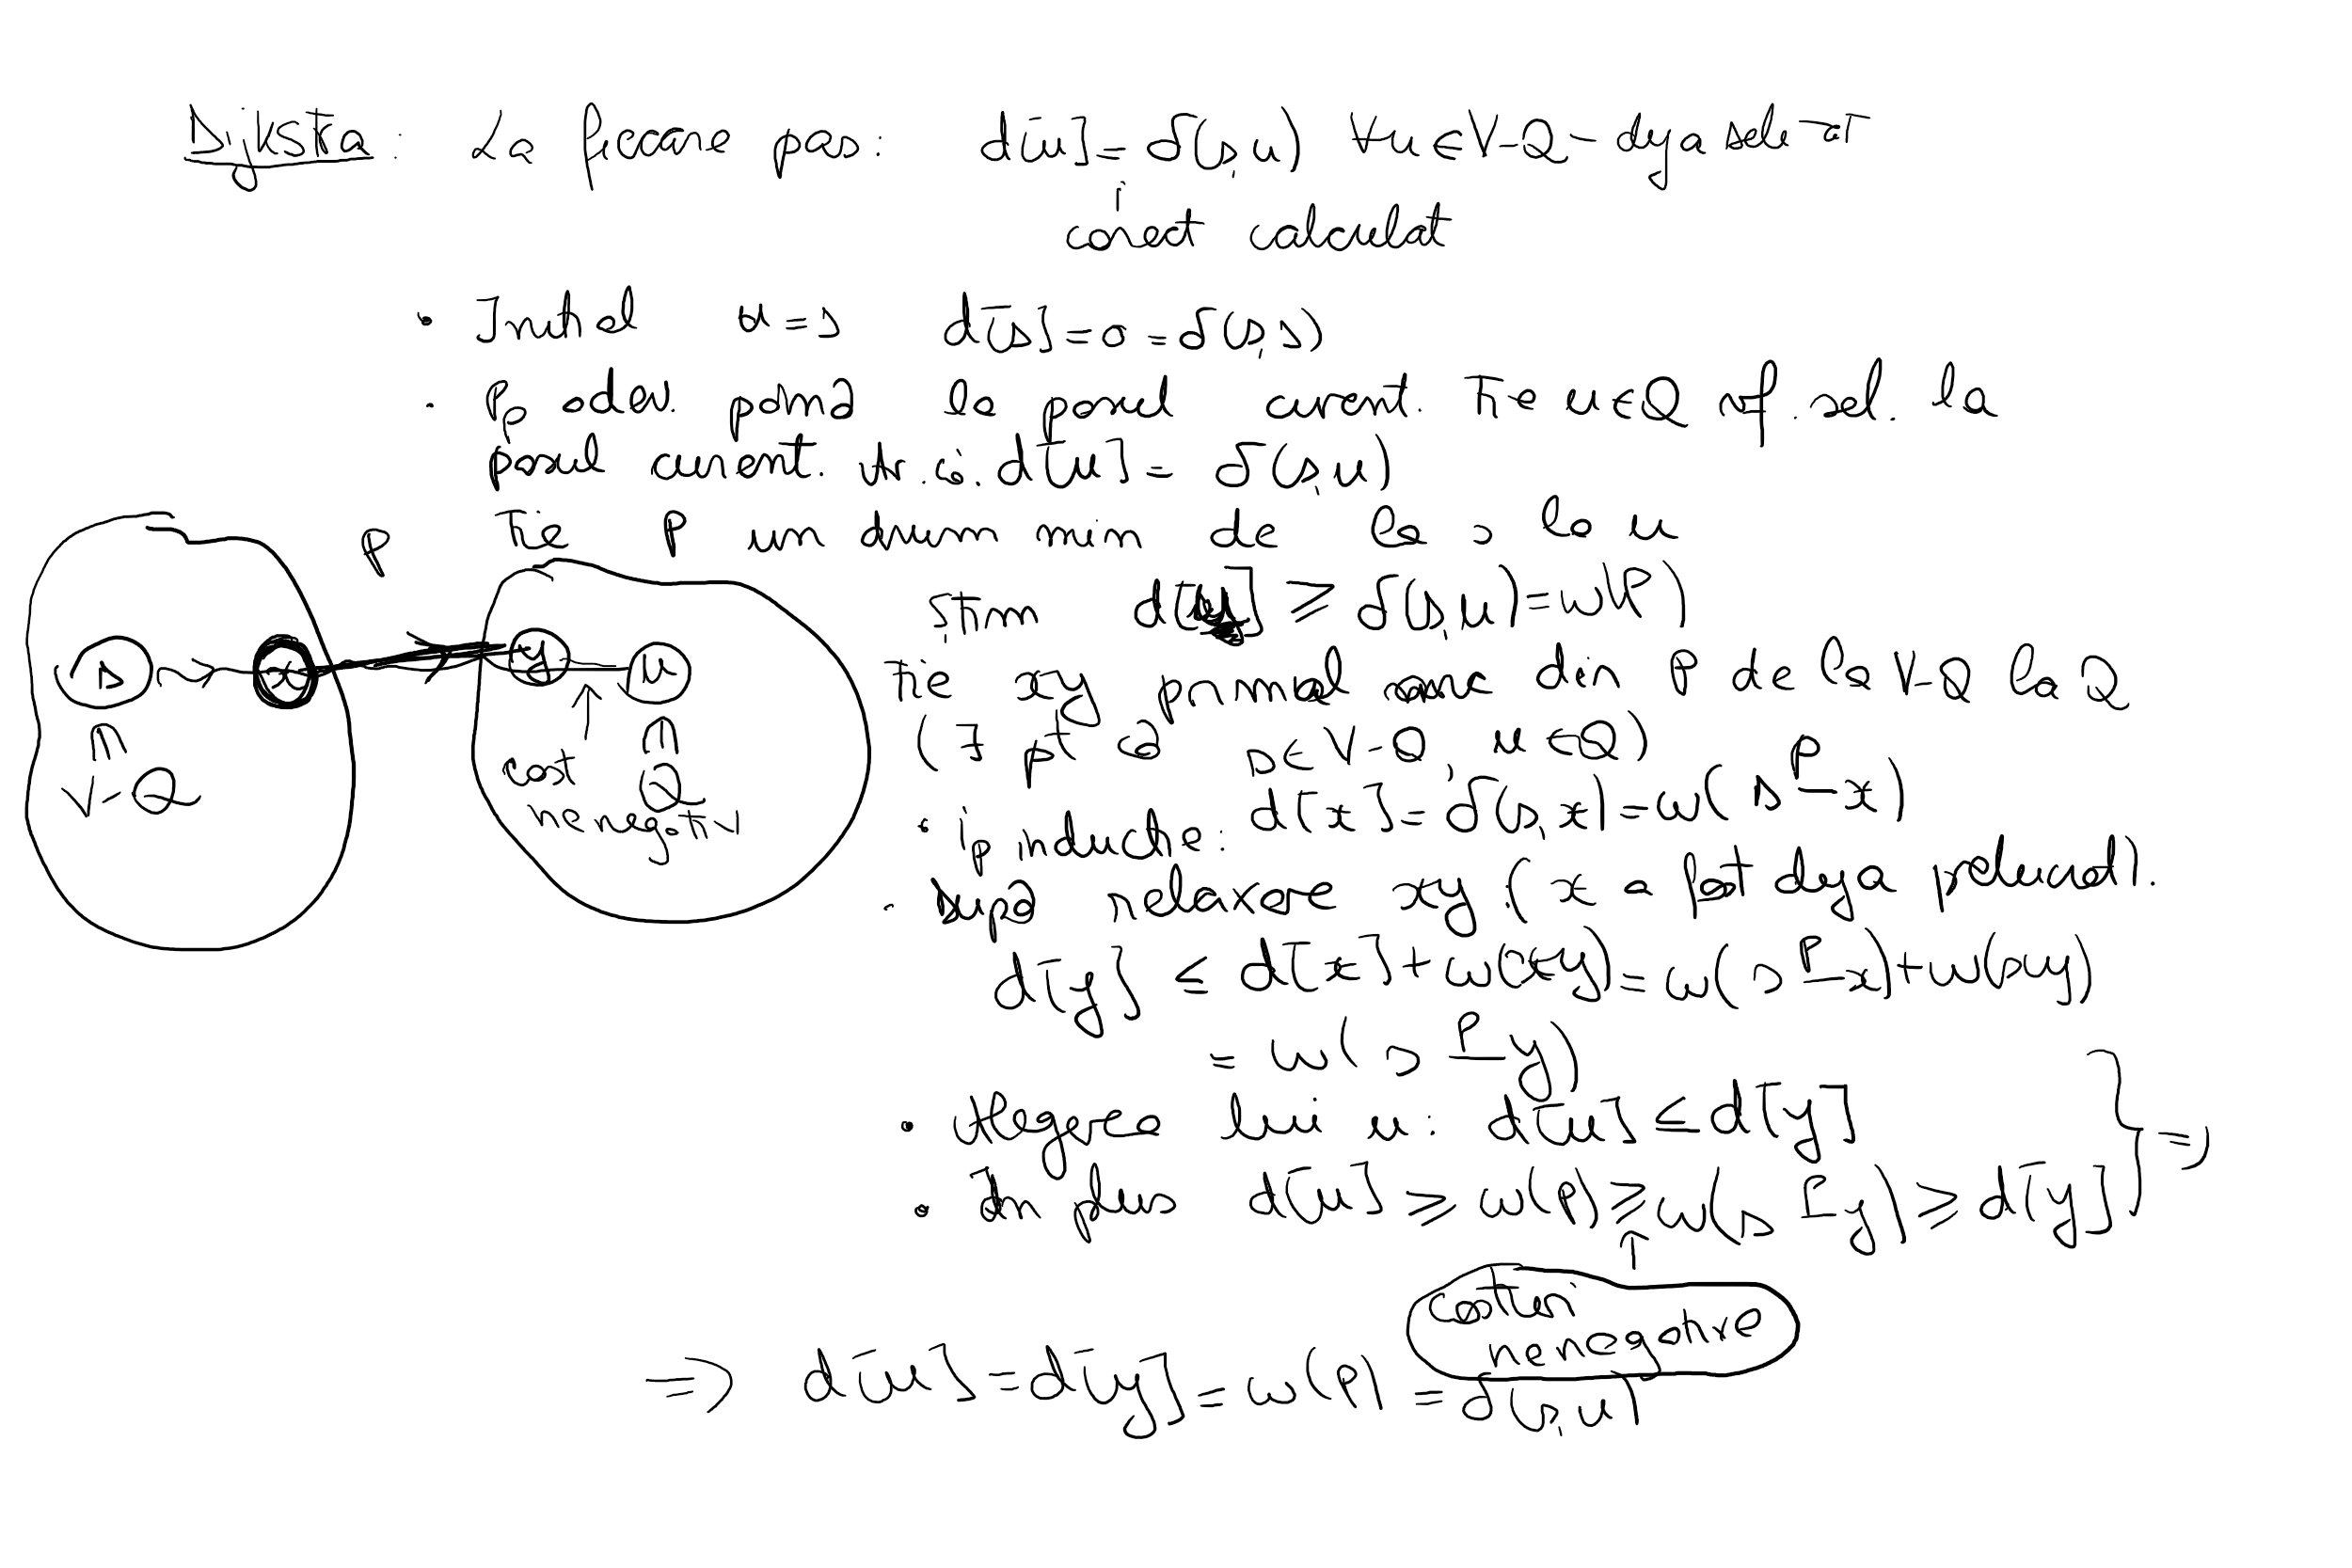 Dijkstra: La fiecare pas: d[u] = δ(s,u) ∀u∈V-Q - deja selectat
corect calculat
• Initial u=s d[s]=0=δ(s,s)
• Pp adev. până la pasul curent. Fie u∈Q vf. sel. la
pasul curent. Ar. că. d[u] = δ(s,u)
Fie P un drum min de la s la u
P
Știm d[u] ≥ δ(s,u)=w(P)
s x y u
Fie xy primul arc din P de la V-Q la Q
(∃ pt că s∈V-Q, u∈Q)
∩ ∩
V-Q Q
cost
nenegativ
• ip inductie: d[x]=δ(s,x)=w(s P x)
• După relaxare xy (x a fost deja prelucrat).
d[y] ≤ d[x]+w(xy)=w(s P x)+w(xy)
= w(s P y)
• Alegerea lui u: d[u] ≤ d[y]
} =>
• În plus d[u] ≥ w(P) ≥ w(s P y) ≥ d[y]
↑
costuri
nenegative
=> d[u]=d[y]=w(P) = δ(s,u)